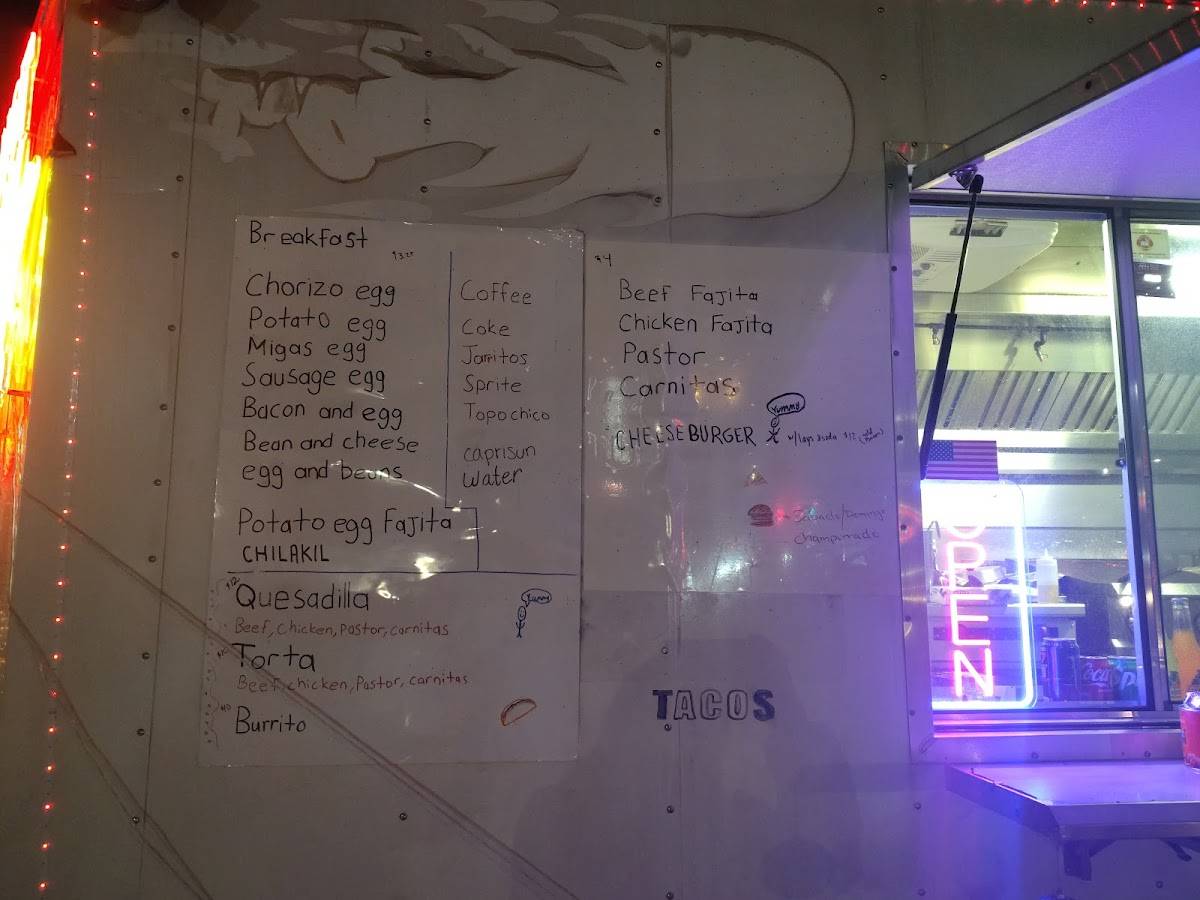 Breakfast
Chorizo egg
Potato egg
Migas egg
Sausage egg
Bacon and egg
Bean and cheese
egg and beans
Potato egg Fajita
CHILAKIL
Coffee
Coke
Jarritos
Sprite
Topo chico
caprisun
water
$12
Quesadilla
Yummy
Beef, chicken, Pastor, carnitas
Torta
Beef, chicken, Pastor, carnitas
Burrito
$4
Beef Fajita
Chicken Fajita
Pastor
Carnitas
Yummy
CHEESEBURGER w/lays &soda $12
champurrado
TACOS
OPEN